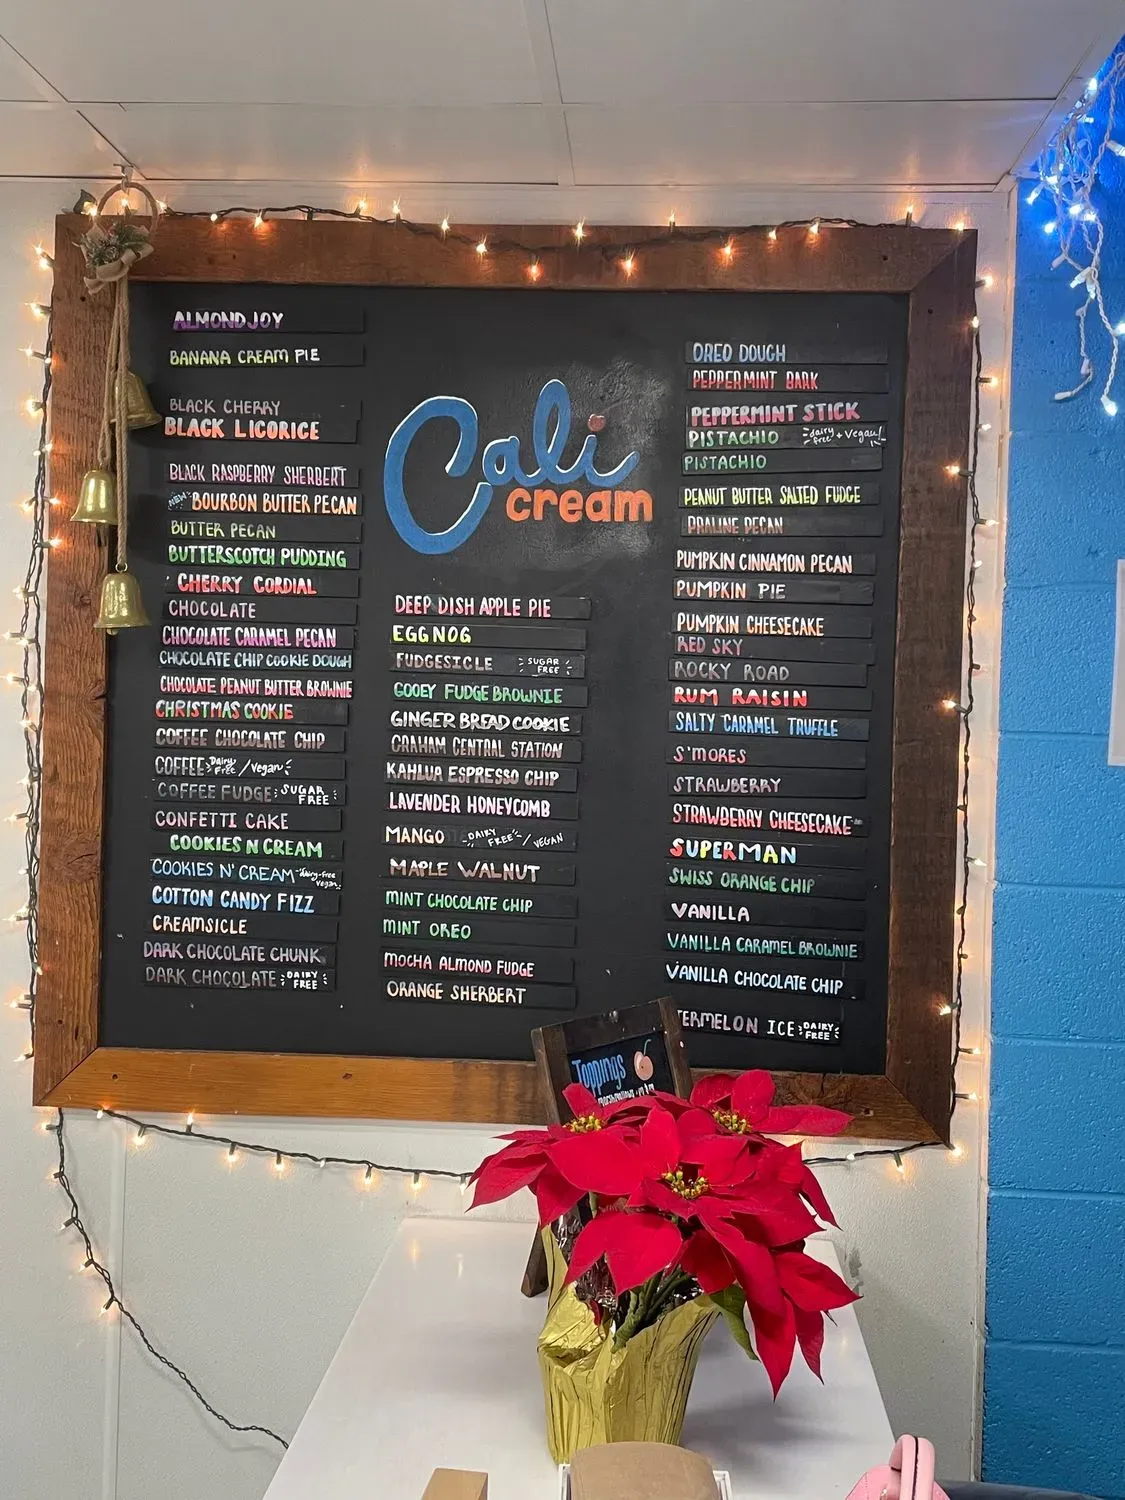 ALMOND JOY
BANANA CREAM PIE
BLACK CHERRY
BLACK LICORICE
BLACK RASPBERRY SHERBERT
NEW BOURBON BUTTER PECAN
BUTTER PECAN
BUTTERSCOTCH PUDDING
CHERRY CORDIAL
CHOCOLATE
CHOCOLATE CARAMEL PECAN
CHOCOLATE CHIP COOKIE DOUGH
CHOCOLATE PEANUT BUTTER BROWNIE
CHRISTMAS COOKIE
COFFEE CHOCOLATE CHIP
COFFEE Dairy Free / Vegan
COFFEE FUDGE SUGAR FREE
CONFETTI CAKE
COOKIES N CREAM
COOKIES N' CREAM dairy-free vegan
COTTON CANDY FIZZ
CREAMSICLE
DARK CHOCOLATE CHUNK
DARK CHOCOLATE DAIRY FREE
Cali
cream
DEEP DISH APPLE PIE
EGG NOG
FUDGESICLE SUGAR FREE
GOOEY FUDGE BROWNIE
GINGER BREAD COOKIE
GRAHAM CENTRAL STATION
KAHLUA ESPRESSO CHIP
LAVENDER HONEYCOMB
MANGO DAIRY FREE / VEGAN
MAPLE WALNUT
MINT CHOCOLATE CHIP
MINT OREO
MOCHA ALMOND FUDGE
ORANGE SHERBERT
OREO DOUGH
PEPPERMINT BARK
PEPPERMINT STICK
PISTACHIO dairy free + Vegan!
PISTACHIO
PEANUT BUTTER SALTED FUDGE
PRALINE PECAN
PUMPKIN CINNAMON PECAN
PUMPKIN PIE
PUMPKIN CHEESECAKE
RED SKY
ROCKY ROAD
RUM RAISIN
SALTY CARAMEL TRUFFLE
S'MORES
STRAWBERRY
STRAWBERRY CHEESECAKE
SUPERMAN
SWISS ORANGE CHIP
VANILLA
VANILLA CARAMEL BROWNIE
VANILLA CHOCOLATE CHIP
TERMELON ICE DAIRY FREE
Toppings